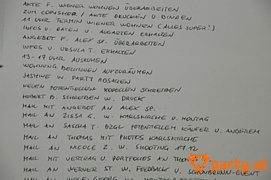 AKTE F. WIENER WOHNEN ÜBERARBEITEN
ZUM COPYSHOP / AKTE DRUCKEN U BINDEN
11 UHR TERMIN WIENER WOHNEN (ALLES SUPER!)
INFOS U. DATEN U. ANGABEN ERHALTEN
ANGEBOT F. ALEX SP. ÜBERARBEITEN
INFOS V. URSULA T. ERHALTEN
13-17 UHR AUSRUHEN
WOHNUNG BEGINNEN AUFZURÄUMEN
JASMINE W. PARTY ABSAGEN
NEUEN POTENTIELLEN MODELLEN SCHREIBEN
HUBERT B. SCHREIBEN W. DRUCK
MAIL MIT ANGEBOT AN ALEX SP.
MAIL AN ZISSA C. W. KARLSKIRCHE U. MONTAG
MAIL AN SASCHA T. BZGL. POTENTIELLEM KÄUFER U. ANDEREM
MAIL AN THOMAS MIT PREISES KARLSKIRCHE
MAIL AN NICOLE Z. W. SHOOTING 17.12
MAIL MIT VERTRAG U PORTFOLIOS AN THOM
MAIL AN WERNER ST. W. FEEDBACK U. SCHÖNBRUNN-EVENT
MAIL AN
carla.at